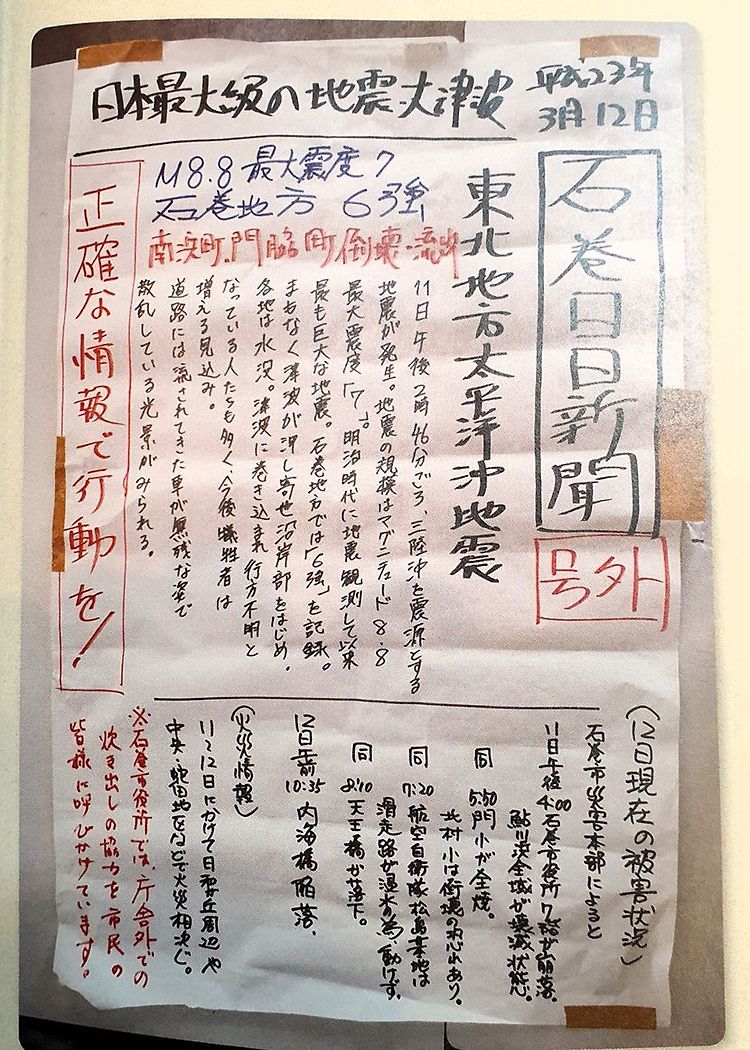 日本最大級の地震・大津波
平成23年
3月12日
石巻日日新聞
号外
東北地方太平洋沖地震
M8.8 最大震度7
石巻地方 6強
南浜町、門脇町倒壊・流出
11日午後2時46分ごろ、三陸沖を震源とする
地震が発生。地震の規模はマグニチュード8.8
最大震度「7」。明治時代に地震観測して以来
最も巨大な地震。石巻地方では「6強」を記録。
まもなく津波が押し寄せ沿岸部をはじめ、
各地は水没。津波に巻き込まれ行方不明と
なっている人たちも多く、今後犠牲者は
増える見込み。
道路には流されてきた車が無残な姿で
散乱している光景がみられる。
正確な情報で行動を!
(12日現在の被害状況)
石巻市災害本部によると
11日午後4:00 石巻市役所7階が崩落。
鮎川浜全域が壊滅状態。
同 5:50 門小が全焼。
北村小は倒壊の恐れあり。
同 7:20 航空自衛隊松島基地は
滑走路が浸水の為、動けず。
同 8:10 天王橋が落下。
12日午前10:35 内海橋陥落。
(火災情報)
11〜12日にかけて日和が丘周辺や
中央・蛇田地区などで火災相次ぐ。
※石巻市役所では、庁舎外での
炊き出しの協力を市民の
皆様に呼びかけています。